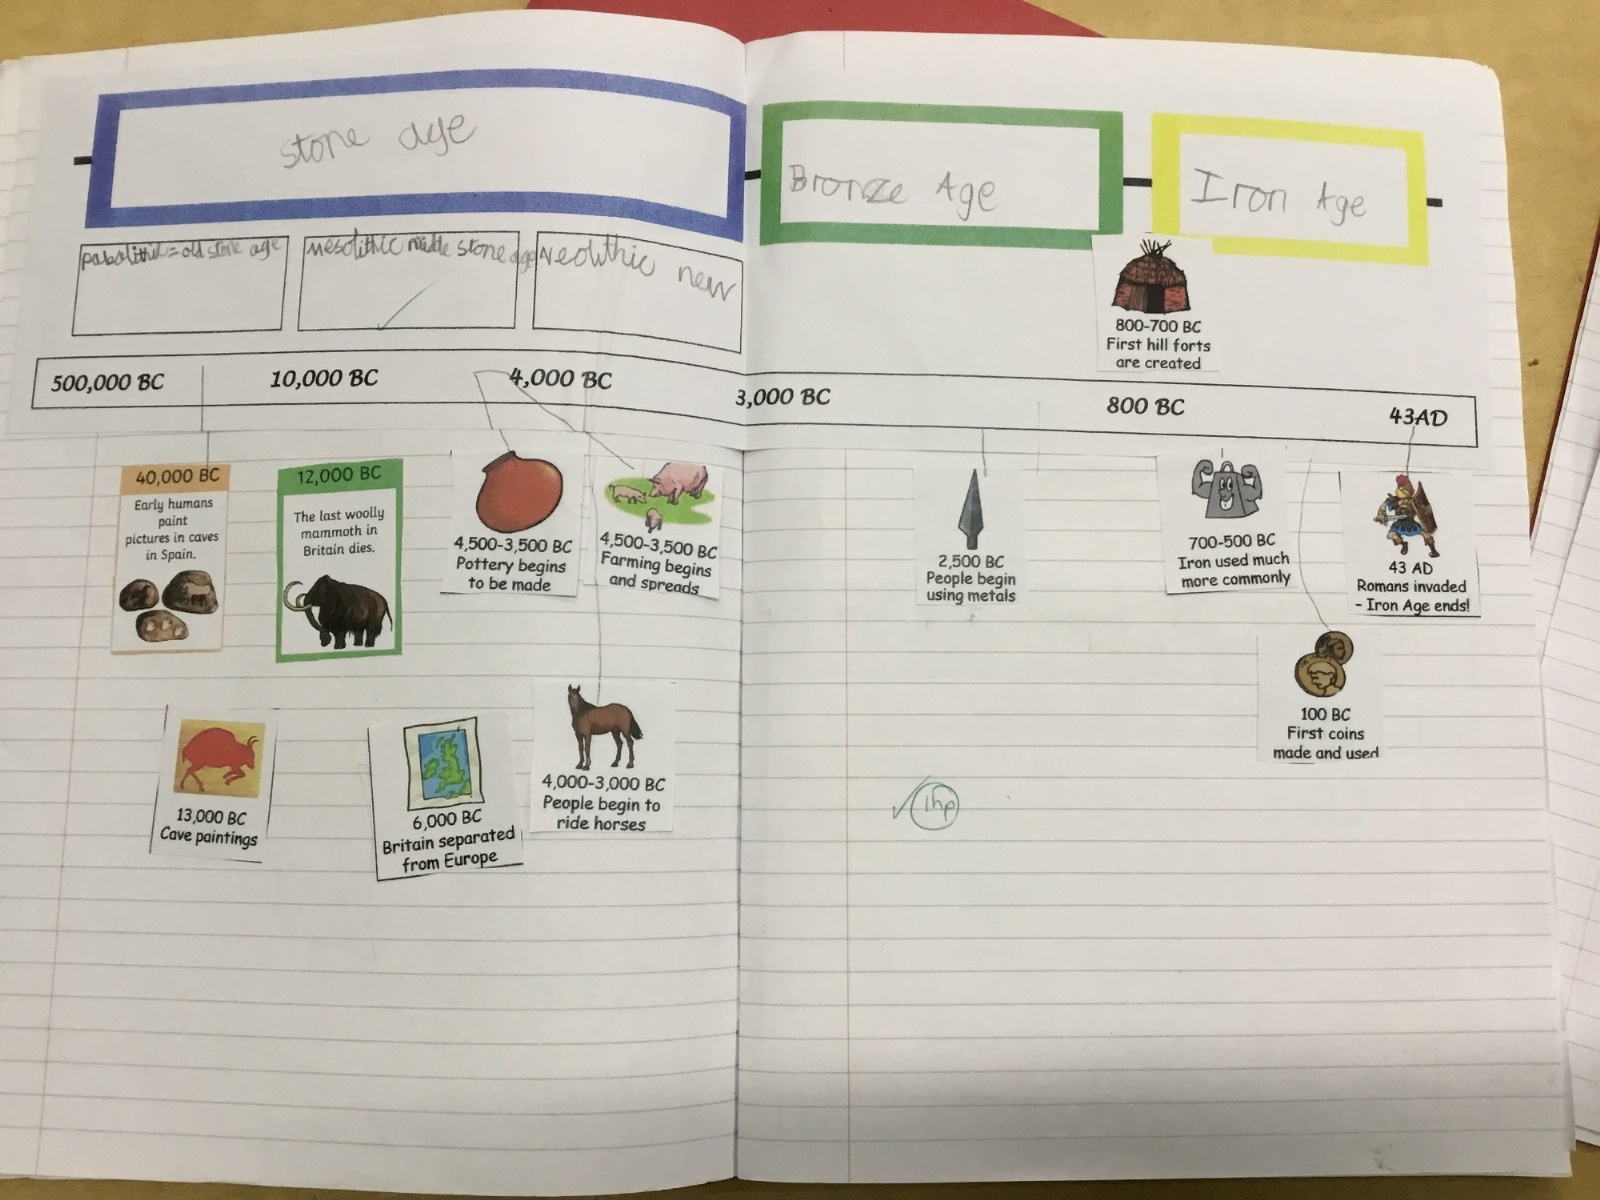 stone age
Bronze Age
Iron Age
pabolithic = old stone age
mesolithic middle stone age
Neolithic new
800-700 BC
First hill forts
are created
500,000 BC
10,000 BC
4,000 BC
3,000 BC
800 BC
43AD
40,000 BC
Early humans
paint
pictures in caves
in Spain.
12,000 BC
The last woolly
mammoth in
Britain dies.
4,500-3,500 BC
Pottery begins
to be made
4,500-3,500 BC
Farming begins
and spreads
2,500 BC
People begin
using metals
700-500 BC
Iron used much
more commonly
43 AD
Romans invaded
- Iron Age ends!
13,000 BC
Cave paintings
6,000 BC
Britain separated
from Europe
4,000-3,000 BC
People begin to
ride horses
100 BC
First coins
made and used
1hp